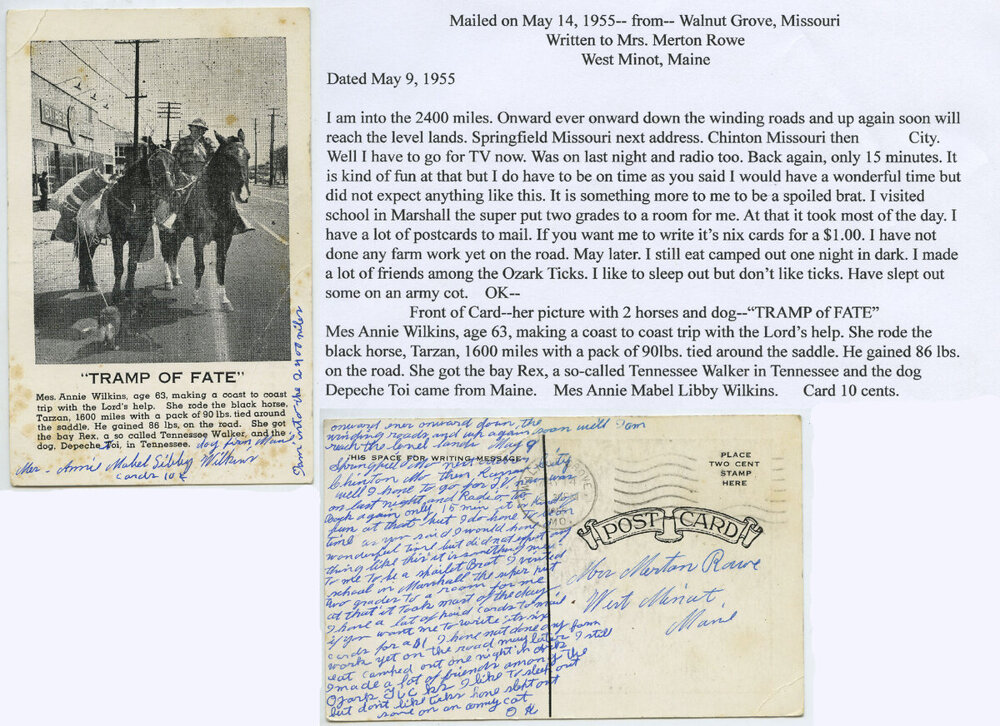 "TRAMP OF FATE"
Mes. Annie Wilkins, age 63, making a coast to coast
trip with the Lord's help. She rode the black horse,
Tarzan, 1600 miles with a pack of 90 lbs. tied around
the saddle. He gained 86 lbs. on the road. She got
the bay Rex, a so called Tennessee Walker, and the
dog, Depeche Toi, in Tennessee. dog from Maine
Mes - Annie Mabel Libby Wilkins
cards 10¢
I am into the 2400 miles
Mailed on May 14, 1955-- from-- Walnut Grove, Missouri
Written to Mrs. Merton Rowe
West Minot, Maine
Dated May 9, 1955
I am into the 2400 miles. Onward ever onward down the winding roads and up again soon will
reach the level lands. Springfield Missouri next address. Chinton Missouri then City.
Well I have to go for TV now. Was on last night and radio too. Back again, only 15 minutes. It
is kind of fun at that but I do have to be on time as you said I would have a wonderful time but
did not expect anything like this. It is something more to me to be a spoiled brat. I visited
school in Marshall the super put two grades to a room for me. At that it took most of the day. I
have a lot of postcards to mail. If you want me to write it's nix cards for a $1.00. I have not
done any farm work yet on the road. May later. I still eat camped out one night in dark. I made
a lot of friends among the Ozark Ticks. I like to sleep out but don't like ticks. Have slept out
some on an army cot. OK--
Front of Card--her picture with 2 horses and dog--"TRAMP OF FATE"
Mes Annie Wilkins, age 63, making a coast to coast trip with the Lord's help. She rode the
black horse, Tarzan, 1600 miles with a pack of 90lbs. tied around the saddle. He gained 86 lbs.
on the road. She got the bay Rex, a so-called Tennessee Walker in Tennessee and the dog
Depeche Toi came from Maine. Mes Annie Mabel Libby Wilkins. Card 10 cents.
onward ever onward down the
winding roads and up again soon will I am
reach the level lands May 9
THIS SPACE FOR WRITING MESSAGE
Springfield Mo next address
Chinton Mo then City
well I have to go for T.V. now was
on last night and Radio to
Back again only 15 min it is kind
fun at that but I do have to be on
time as you said I would have
wonderful time but did not expect any
thing like this it is something more
to me to be a spoilet Brat I visited
school in Marshall the super put
two grades to a room for me
at that it took most of the day
I have a lot of paid cards to mail
if you want me to write its six
cards for a $1 I have not done any farm
work yet on the road may later I still
eat camped out one night in dark
I made a lot of friends among the
Ozark I like to sleep out
but dont like ticks have slept out
some on an army cot
O K
PLACE
TWO CENT
STAMP
HERE
POST CARD
Mrs Merton Rowe
West Minot
Maine